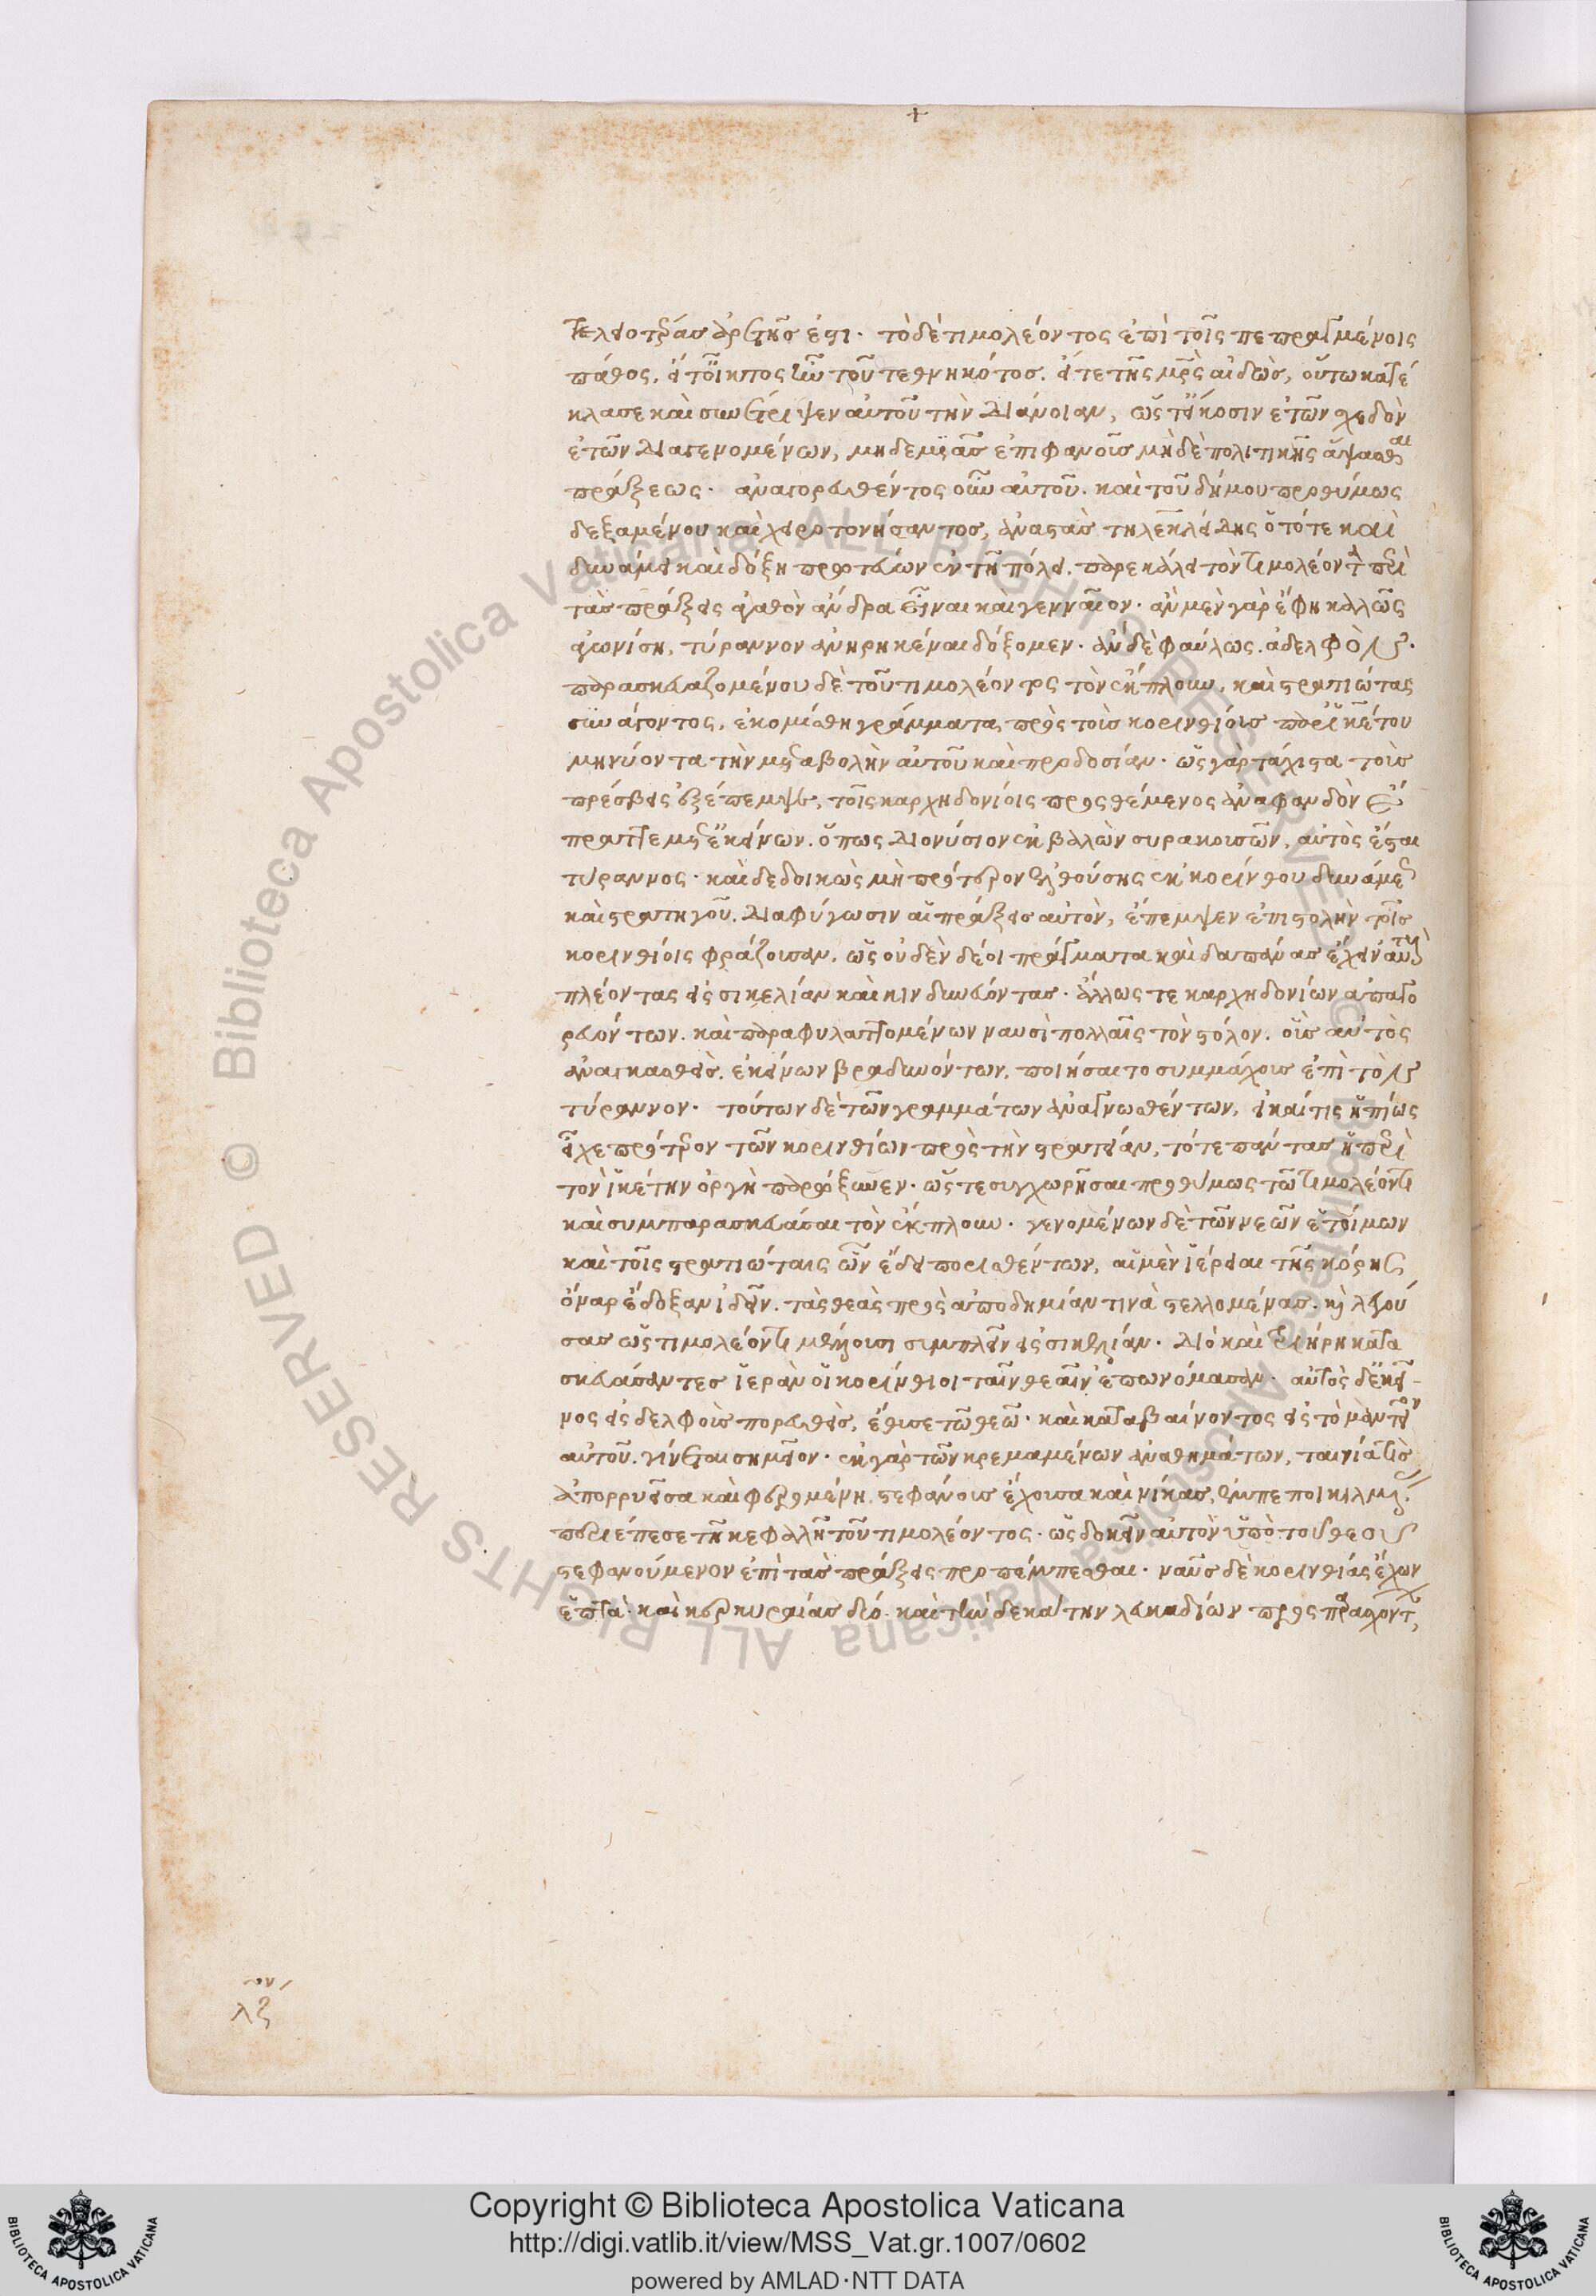 τελειοτέρας ἀρετῆς ἐστι. τὸ δὲ τιμολέοντος ἐπὶ τοῖς πεπραγμένοις
πάθος, εἴτ' οἶκτος ἦν τοῦ τεθνηκότος. εἴτε τῆς μητρὸς αἰδὼς, οὕτω κατέ
κλασε καὶ συνέτριψεν αὐτοῦ τὴν διάνοιαν, ὥστ' εἴκοσιν ἐτῶν σχεδὸν
ἐτῶν διαγενομένων, μηδεμιᾶς ἐπιφανοῦς μὴ δὲ πολιτικῆς ἅψασθαι
πράξεως. ἀναγορευθέντος οὖν αὐτοῦ. καὶ τοῦ δήμου προθύμως
δεξαμένου καὶ χειροτονήσαντος, ἀναστὰς τηλεκλείδης ὁ τότε καὶ
δυνάμει καὶ δόξῃ πρωτεύων ἐν τῇ πόλει. παρεκάλει τὸν τιμολέοντα περὶ
τὰς πράξεις ἀγαθὸν ἄνδρα εἶναι καὶ γενναῖον. ἂν μὲν γὰρ ἔφη καλῶς
ἀγωνίσῃ, τύραννον ἀνῃρηκέναι δόξομεν. ἂν δὲ φαύλως. ἀδελφόν.
παρασκευαζομένου δὲ τοῦ τιμολέοντος τὸν ἔκπλουν, καὶ στρατιώτας
συνάγοντος, ἐκομίσθη γράμματα πρὸς τοὺς κορινθίους παρ' ἱκέτου
μηνύοντα τὴν μεταβολὴν αὐτοῦ καὶ προδοσίαν. ὡς γὰρ τάχιστα τοὺς
πρέσβεις ἐξέπεμψε, τοῖς καρχηδονίοις προσθέμενος ἀναφανδὸν
ἔπραττε μετ' ἐκείνων. ὅπως διονύσιον ἐκβαλὼν συρακουσῶν, αὐτὸς ἔσται
τύραννος. καὶ δεδοικὼς μὴ πρότερον ἐλθούσης ἐκ κορίνθου δυνάμεως
καὶ στρατηγοῦ. διαφύγωσιν αἱ πράξεις αὐτὸν, ἔπεμψεν ἐπιστολὴν τοῖς
κορινθίοις φράζουσαν, ὡς οὐδὲν δέοι πράγματα καὶ δαπάνας ἔχειν αὐτοὺς
πλέοντας εἰς σικελίαν καὶ κινδυνεύοντας. ἄλλως τε καρχηδονίων ἀπαγο
ρευόντων. καὶ παραφυλαττομένων ναυσὶ πολλαῖς τὸν στόλον. οὓς αὐτὸς
ἀναγκασθεὶς. ἐκείνων βραδυνόντων. ποιήσαιτο συμμάχους ἐπὶ τὸν
τύραννον. τούτων δὲ τῶν γραμμάτων ἀναγνωσθέντων, εἰ καί τις ἠπίως
εἶχε πρότερον τῶν κορινθίων πρὸς τὴν στρατείαν, τότε πάντας ἡ περὶ
τὸν ἱκέτην ὀργὴ παρώξυνεν. ὥστε συγχωρῆσαι προθύμως τῷ τιμολέοντι
καὶ συμπαρασκευάσαι τὸν ἔκπλουν. γενομένων δὲ τῶν νεῶν ἑτοίμων
καὶ τοῖς στρατιώταις ὧν ἔδει πορισθέντων, αἱ μὲν ἱέρειαι τῆς κόρης
ὄναρ ἔδοξαν ἰδεῖν. τὰς θεὰς πρὸς ἀποδημίαν τινὰ στελλομένας. καὶ λεγού
σας ὡς τιμολέοντι μέλλουσι συμπλεῖν εἰς σικελίαν. διὸ καὶ τριήρη κατα
σκευάσαντες ἱερὰν οἱ κορίνθιοι ταῖν θεαῖν ἐπωνόμασαν. αὐτὸς δ' ἐκεῖ-
νος εἰς δελφοὺς πορευθεὶς, ἔθυσε τῷ θεῷ. καὶ καταβαίνοντος εἰς τὸ μαντεῖον
αὐτοῦ. γίνεται σημεῖον. ἐκ γὰρ τῶν κρεμαμένων ἀναθημάτων, ταινία τις
ἀπορρυεῖσα καὶ φερομένη, στεφάνους ἔχουσα καὶ νίκας, ἐμπεποικιλμένας
περιέπεσε τῇ κεφαλῇ τοῦ τιμολέοντος. ὡς δοκεῖν αὐτὸν ὑπὸ τοῦ θεοῦ
στεφανούμενον ἐπὶ τὰς πράξεις προπέμπεσθαι. ναῦς δὲ κορινθίας ἔχων
ἑπτὰ. καὶ κερκυραίας δύο. καὶ τὴν δεκάτην λευκαδίων προσπαρασχόντων,
λζον